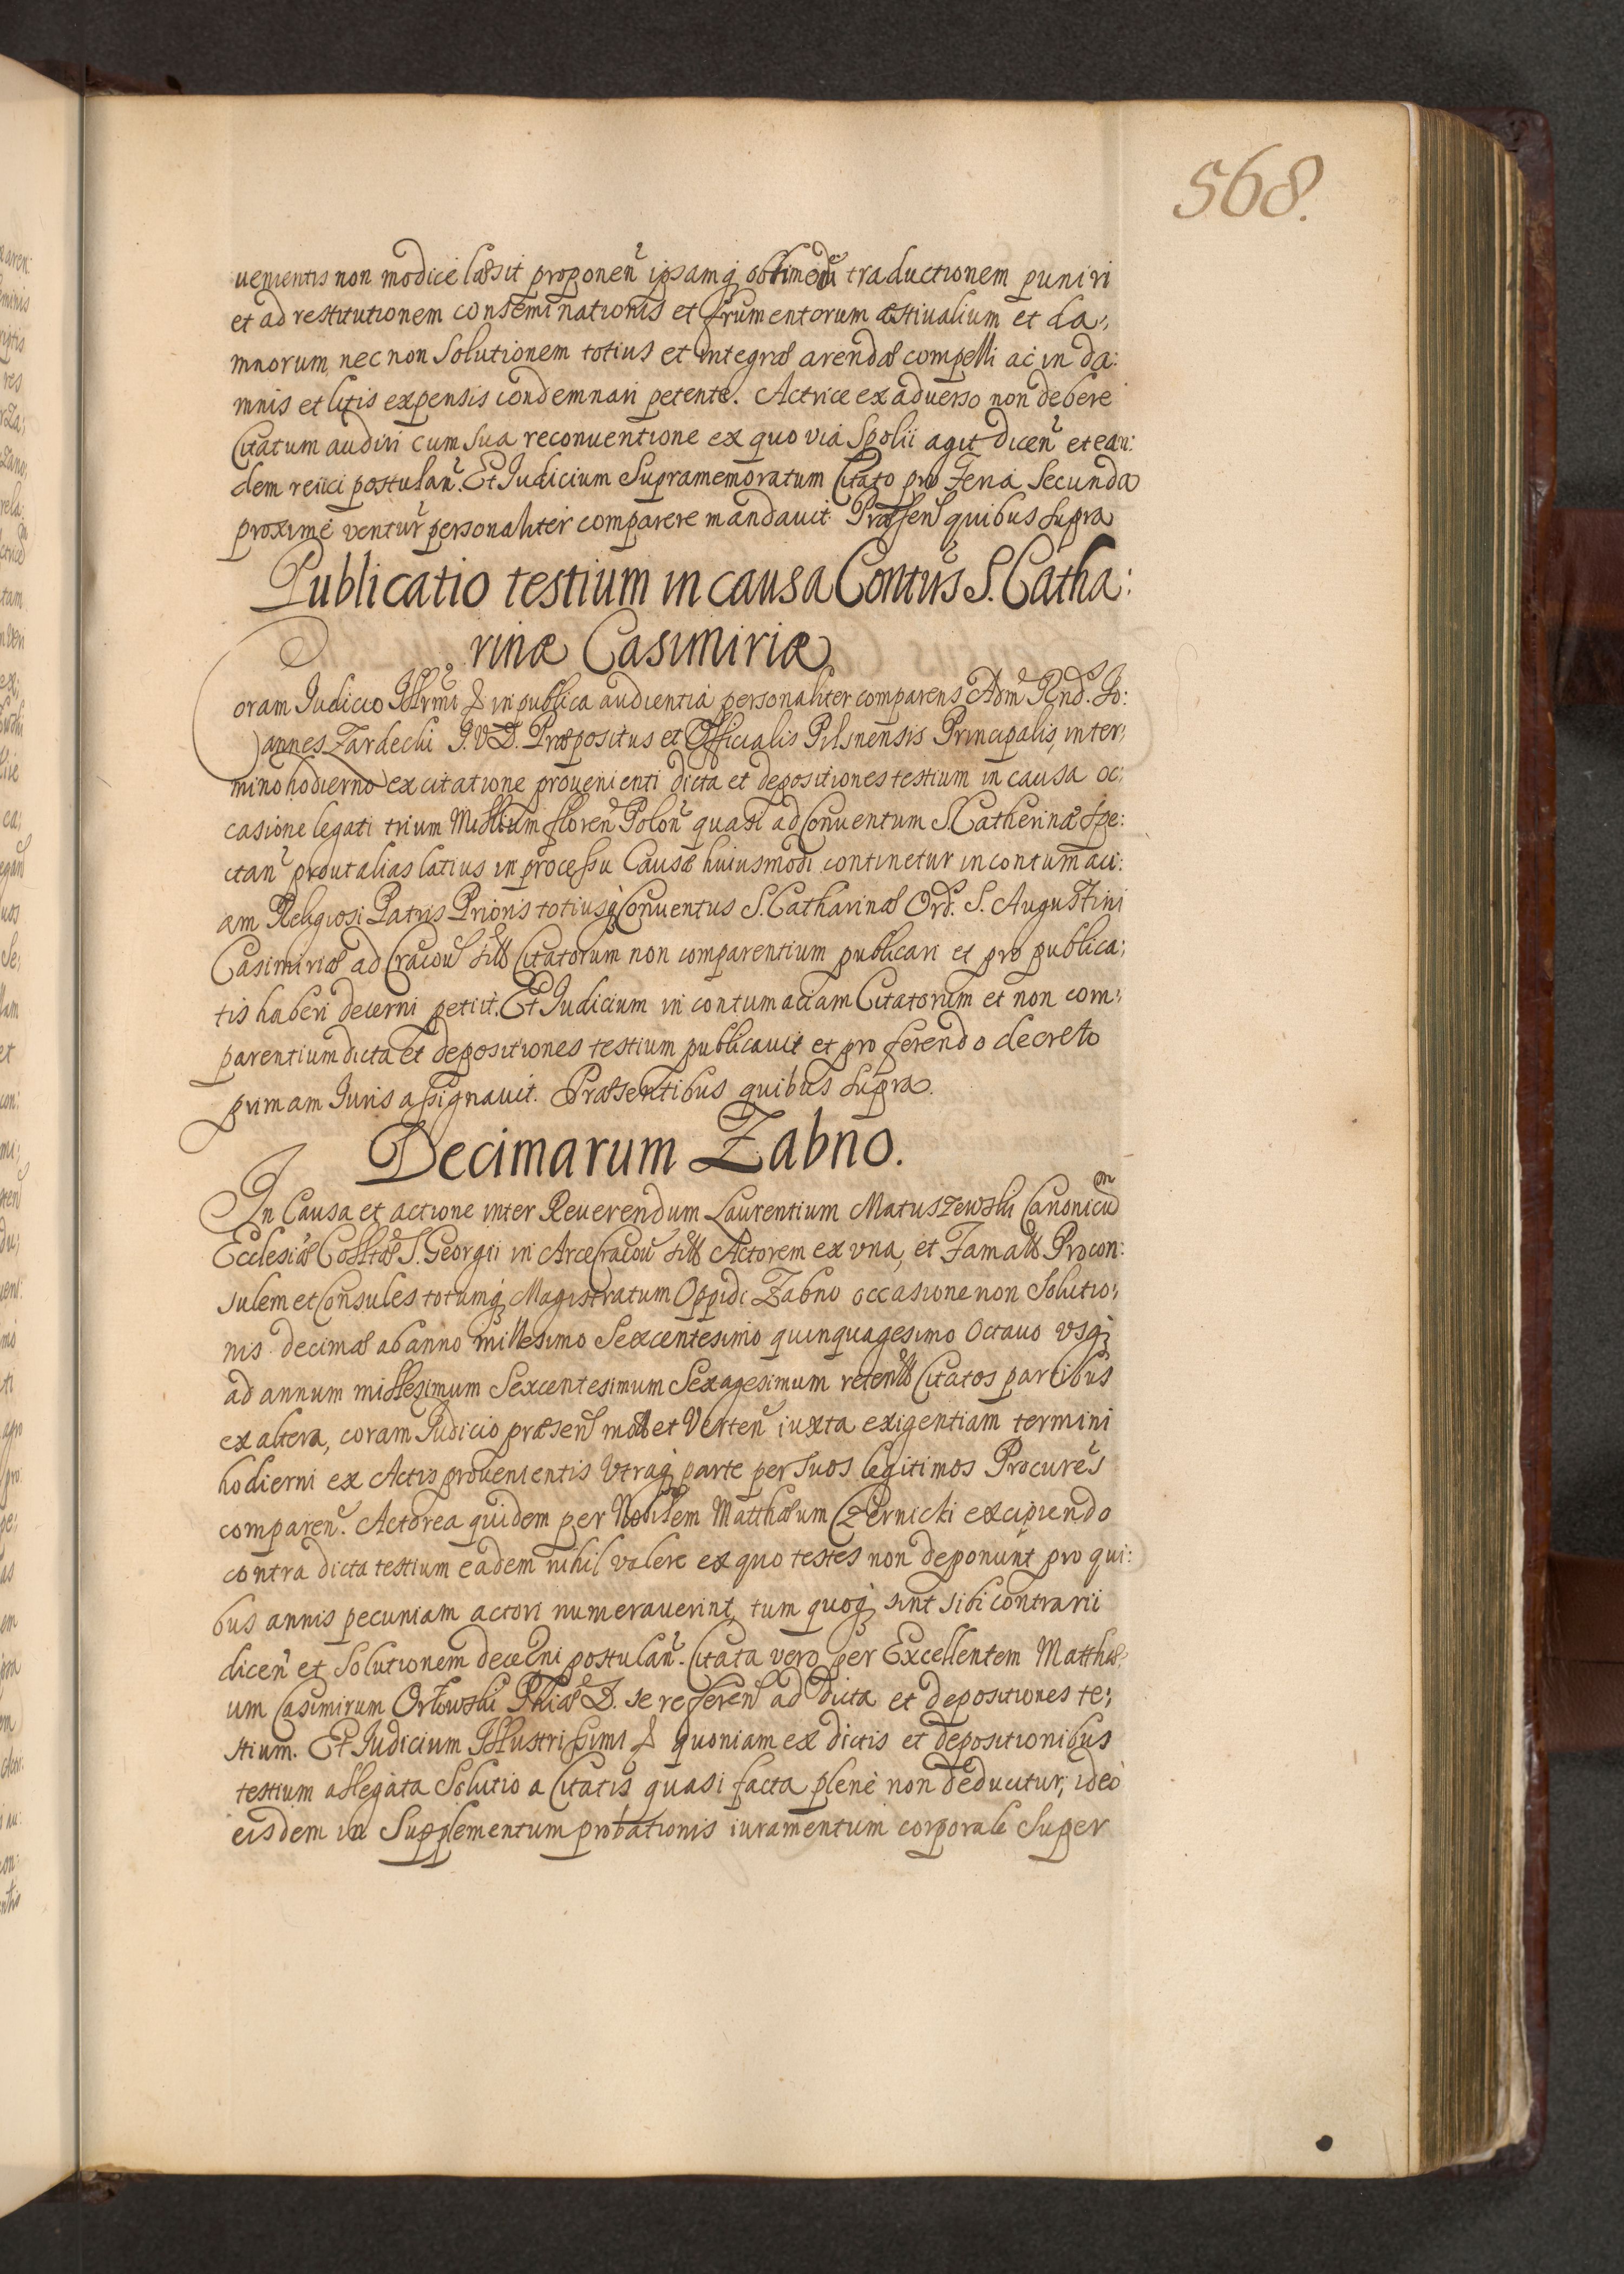 568.
uenientis non modice læsit proponen̄ ipsamq̨ traductionem puniri
et ad restitutionem conseminationis et frumentorum æstiualium et da:
mnorum nec non Solutionem totius et integræ arendæ compelli ac in da:
mnis et litis expensis condemnari petente. Actrice ex aduerso non debere
Citatum audiri cum sua reconuentione ex quo via Spolii agit dicen̄ et ean:
dem reiici postulan̄. Et Iudicium Supramemoratum Citato pro Feria Secunda
proxime ventur̄ personaliter comparere mandauit. Præsen̄ quibus supra
Publicatio testium in causa Contūs S. Catha:
rinæ Casimiriæ
Coram Iudicio Illrmi & in publica audientia personaliter comparens Adm̄ Rnd. Jo:
annes Zardecki J. V. D. Præpositus et Officialis Pilsnensis Principalis, in ter:
mino hodierno ex citatione prouenienti dicta et depositiones testium in causa oc:
casione legati trium Millium floren̄ Polon̄ quasi ad Conuentum S. Catherinæ spe:
ctan̄ prout alias latius in processu Causæ huiusmodi continetur in contumaci:
am Religiosi Patris Prioris totiusq̨ Conuentus S. Catharinæ Ord. S. Augustini
Casimiriæ ad Cracou̅ sitt Citatorum non comparentium publicari et pro publica:
tis haberi decerni petiit. Et Iudicium in contumaciam Citatorum et non com:
parentium dicta et depositiones testium publicauit et pro ferendo decreto
primam Iuris assignauit. Præsentibus quibus supra.
Decimarum Żabno.
In Causa et actione inter Reuerendum Laurentium Matuszewski Canonicum
Ecclesiæ Collttæ S. Georgii in Arce Cracou̅ sitt Actorem ex vna, et Famatt Procon:
sulem et Consules totumq̨ Magistratum Oppidi Żabno occasione non Solutio:
nis decimæ ab anno millesimo Sexcentesimo quinquagesimo Octauo vsq̨
ad annum millesimum Sexcentesimum Sexagesimum retentt Citatos partibus
ex altera, coram Iudicio præsen̄ mott et Verten̄ iuxta exigentiam termini
hodierni ex Actis prouenientis Vtraq̨ parte per suos legitimos Procurēs
comparen̄. Actorea quidem per Nobilem Matthæum Czernicki excipiendo
contra dicta testium eadem nihil valere ex quo testes non deponunt pro qui:
bus annis pecuniam actori numerauerint, tum quoq̨ sint sibi contrarii
dicen̄ et Solutionem decerni postulan̄. Citata vero per Excellentem Matthæ:
um Casimirum Orłowski Phiæ D. se referen̄ ad dicta et depositiones te:
stium. Et Iudicium Illustrissimi & quoniam ex dictis et depositionibus
testium allegata Solutio a Citatis quasi facta plene non deducitur, ideo
eisdem in Supplementum probationis iuramentum corporale super